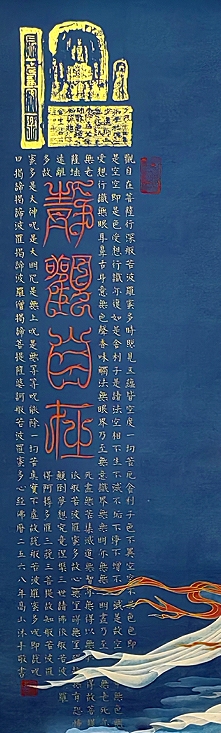 觀自在菩薩行深般若波羅蜜多時照見五蘊皆空度一切苦厄舍利子色不異空空不異色色即
是空空即是色受想行識亦復如是舍利子是諸法空相不生不滅不垢不淨不增不減是故空中無色無
受想行識無眼耳鼻舌身意無色聲香味觸法無眼界乃至無意識界無無明亦無無明盡乃至無老死亦
無老死盡無苦集滅道無智亦無得以無所得故菩提
薩埵依般若波羅蜜多故心無罣礙無罣礙故無有恐怖
遠離顛倒夢想究竟涅槃三世諸佛依般若波羅蜜多故
得阿耨多羅三藐三菩提故知般若波羅
靜觀自在
蜜多是大神咒是大明咒是無上咒是無等等咒能除一切苦真實不虛故說般若波羅蜜多咒即說咒
曰揭諦揭諦波羅揭諦波羅僧揭諦菩提薩婆訶般若波羅蜜多心經佛曆二五六八年高山沐手敬書